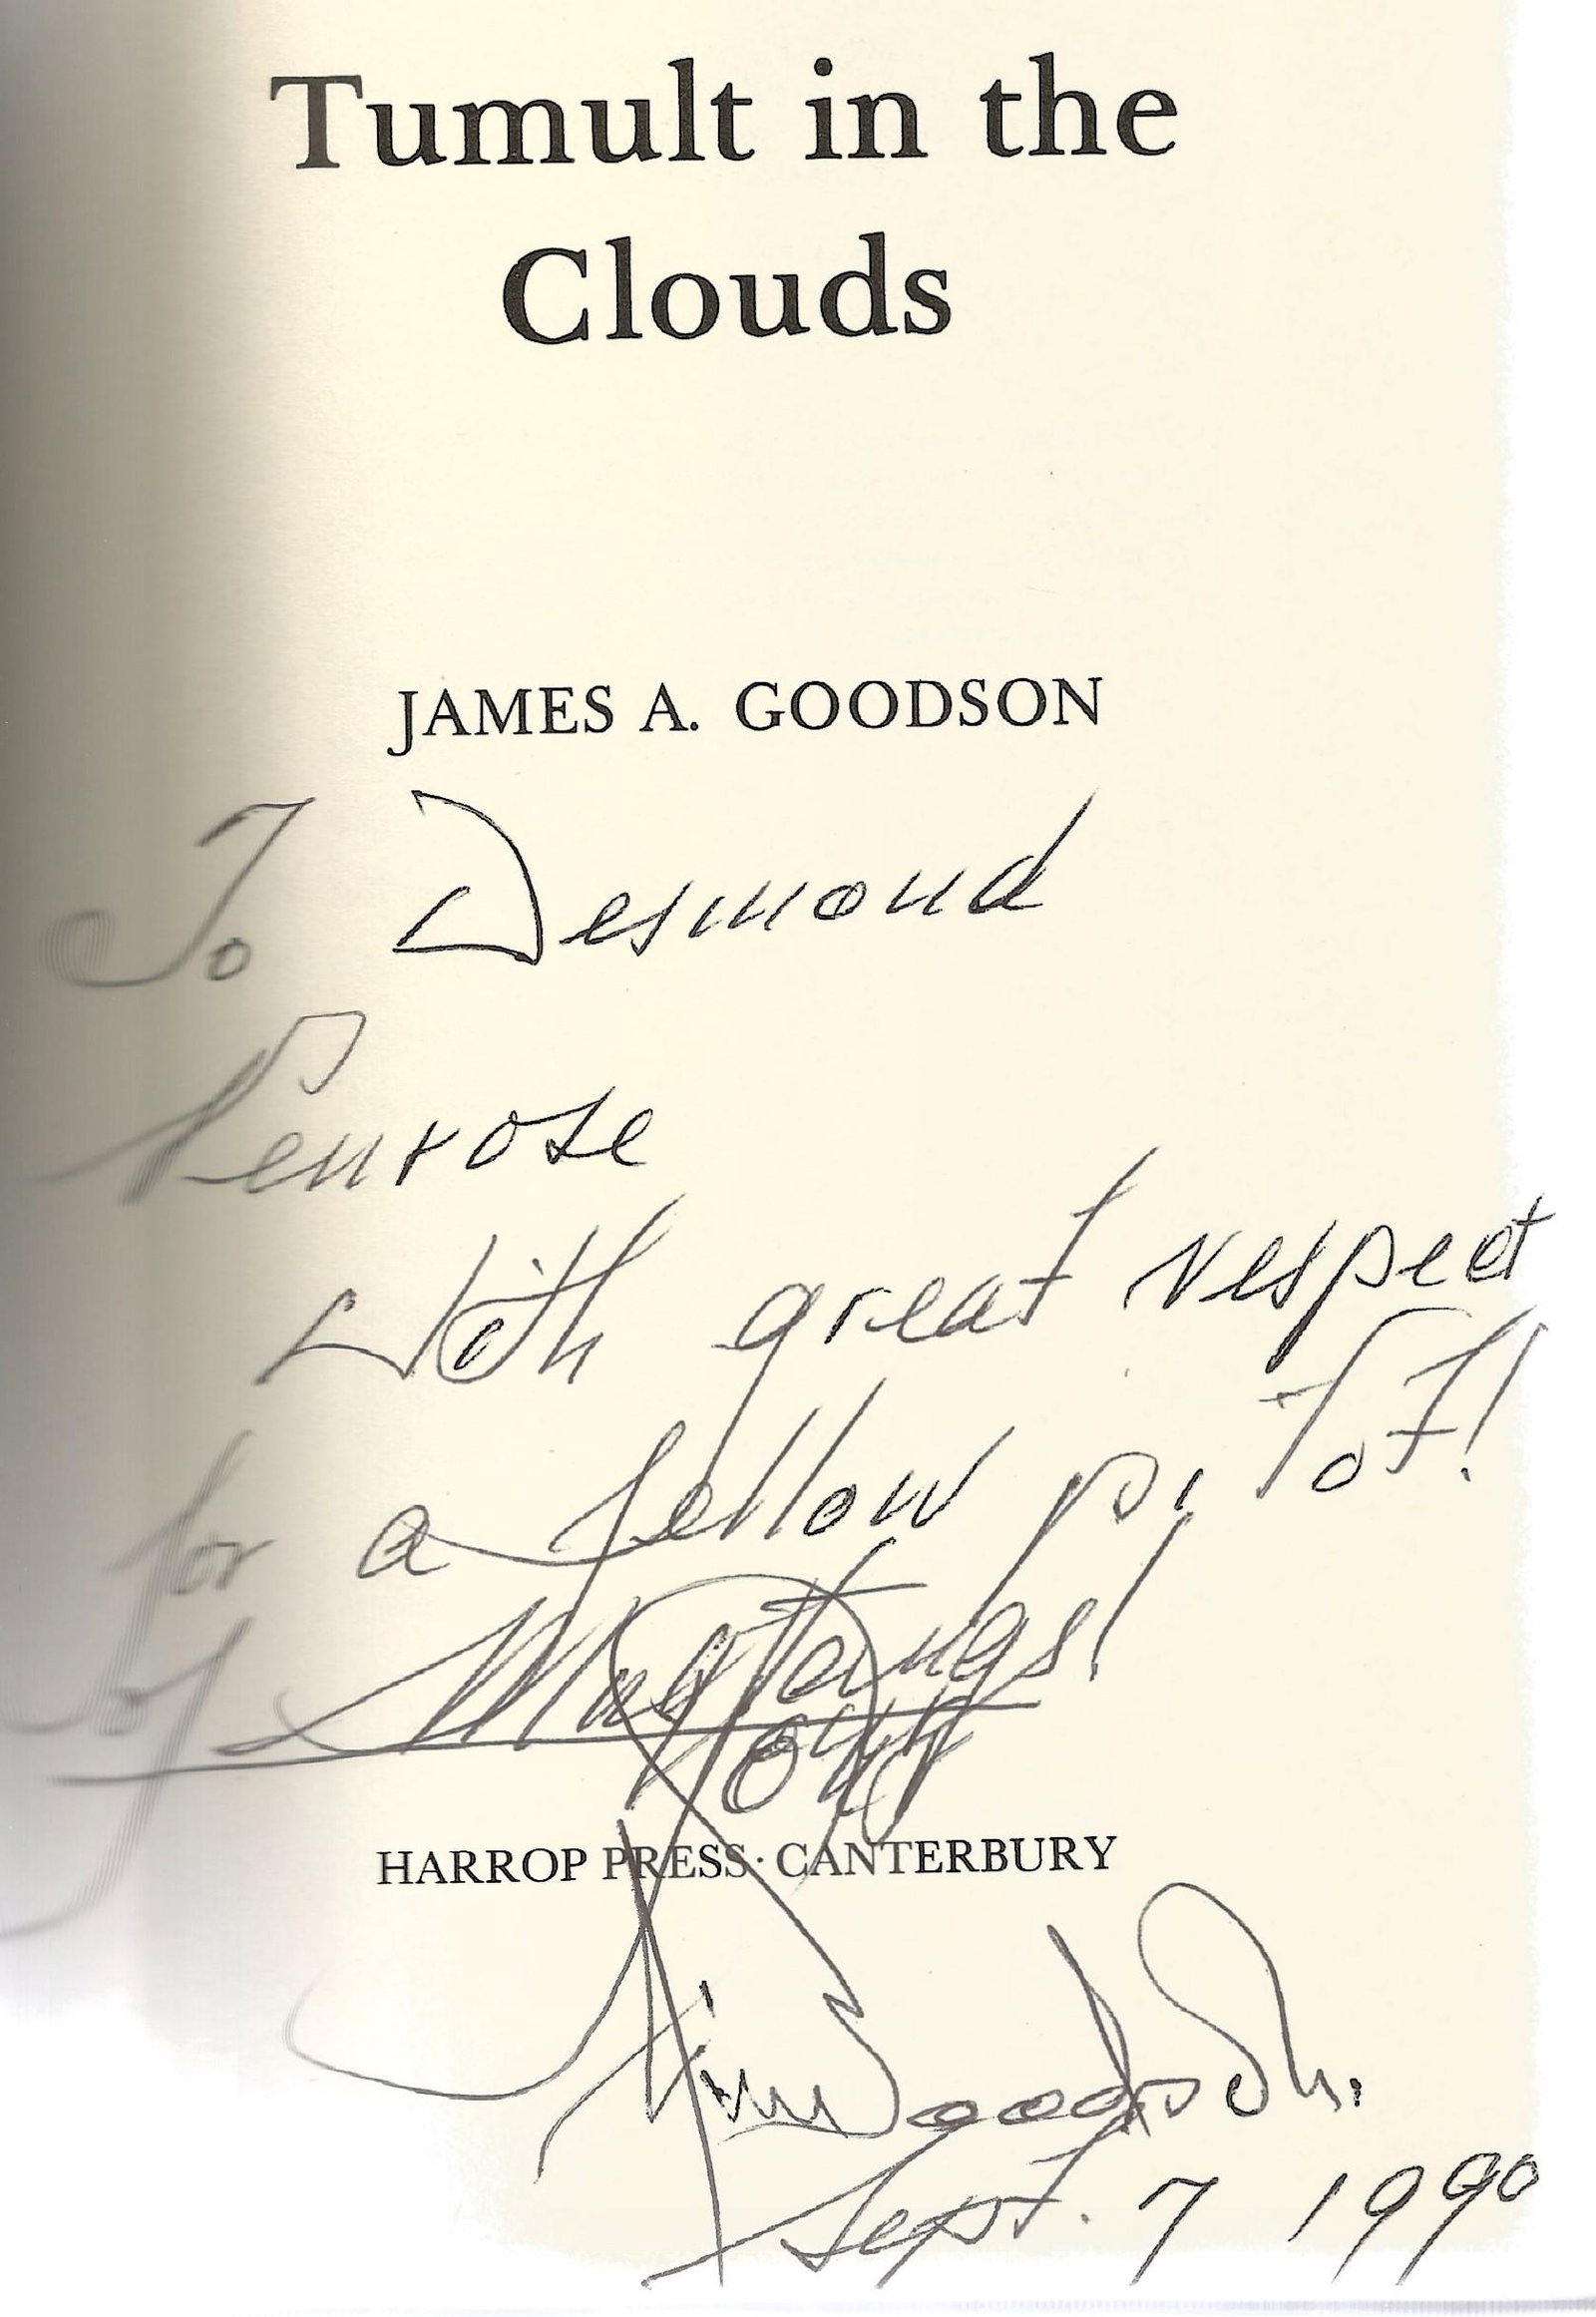 Tumult in the
Clouds
JAMES A. GOODSON
To Desmond
Penrose
With great respect
for a fellow pilot!
of Mustangs!
HARROP PRESS · CANTERBURY
Jim Goodson.
Sept. 7 1990